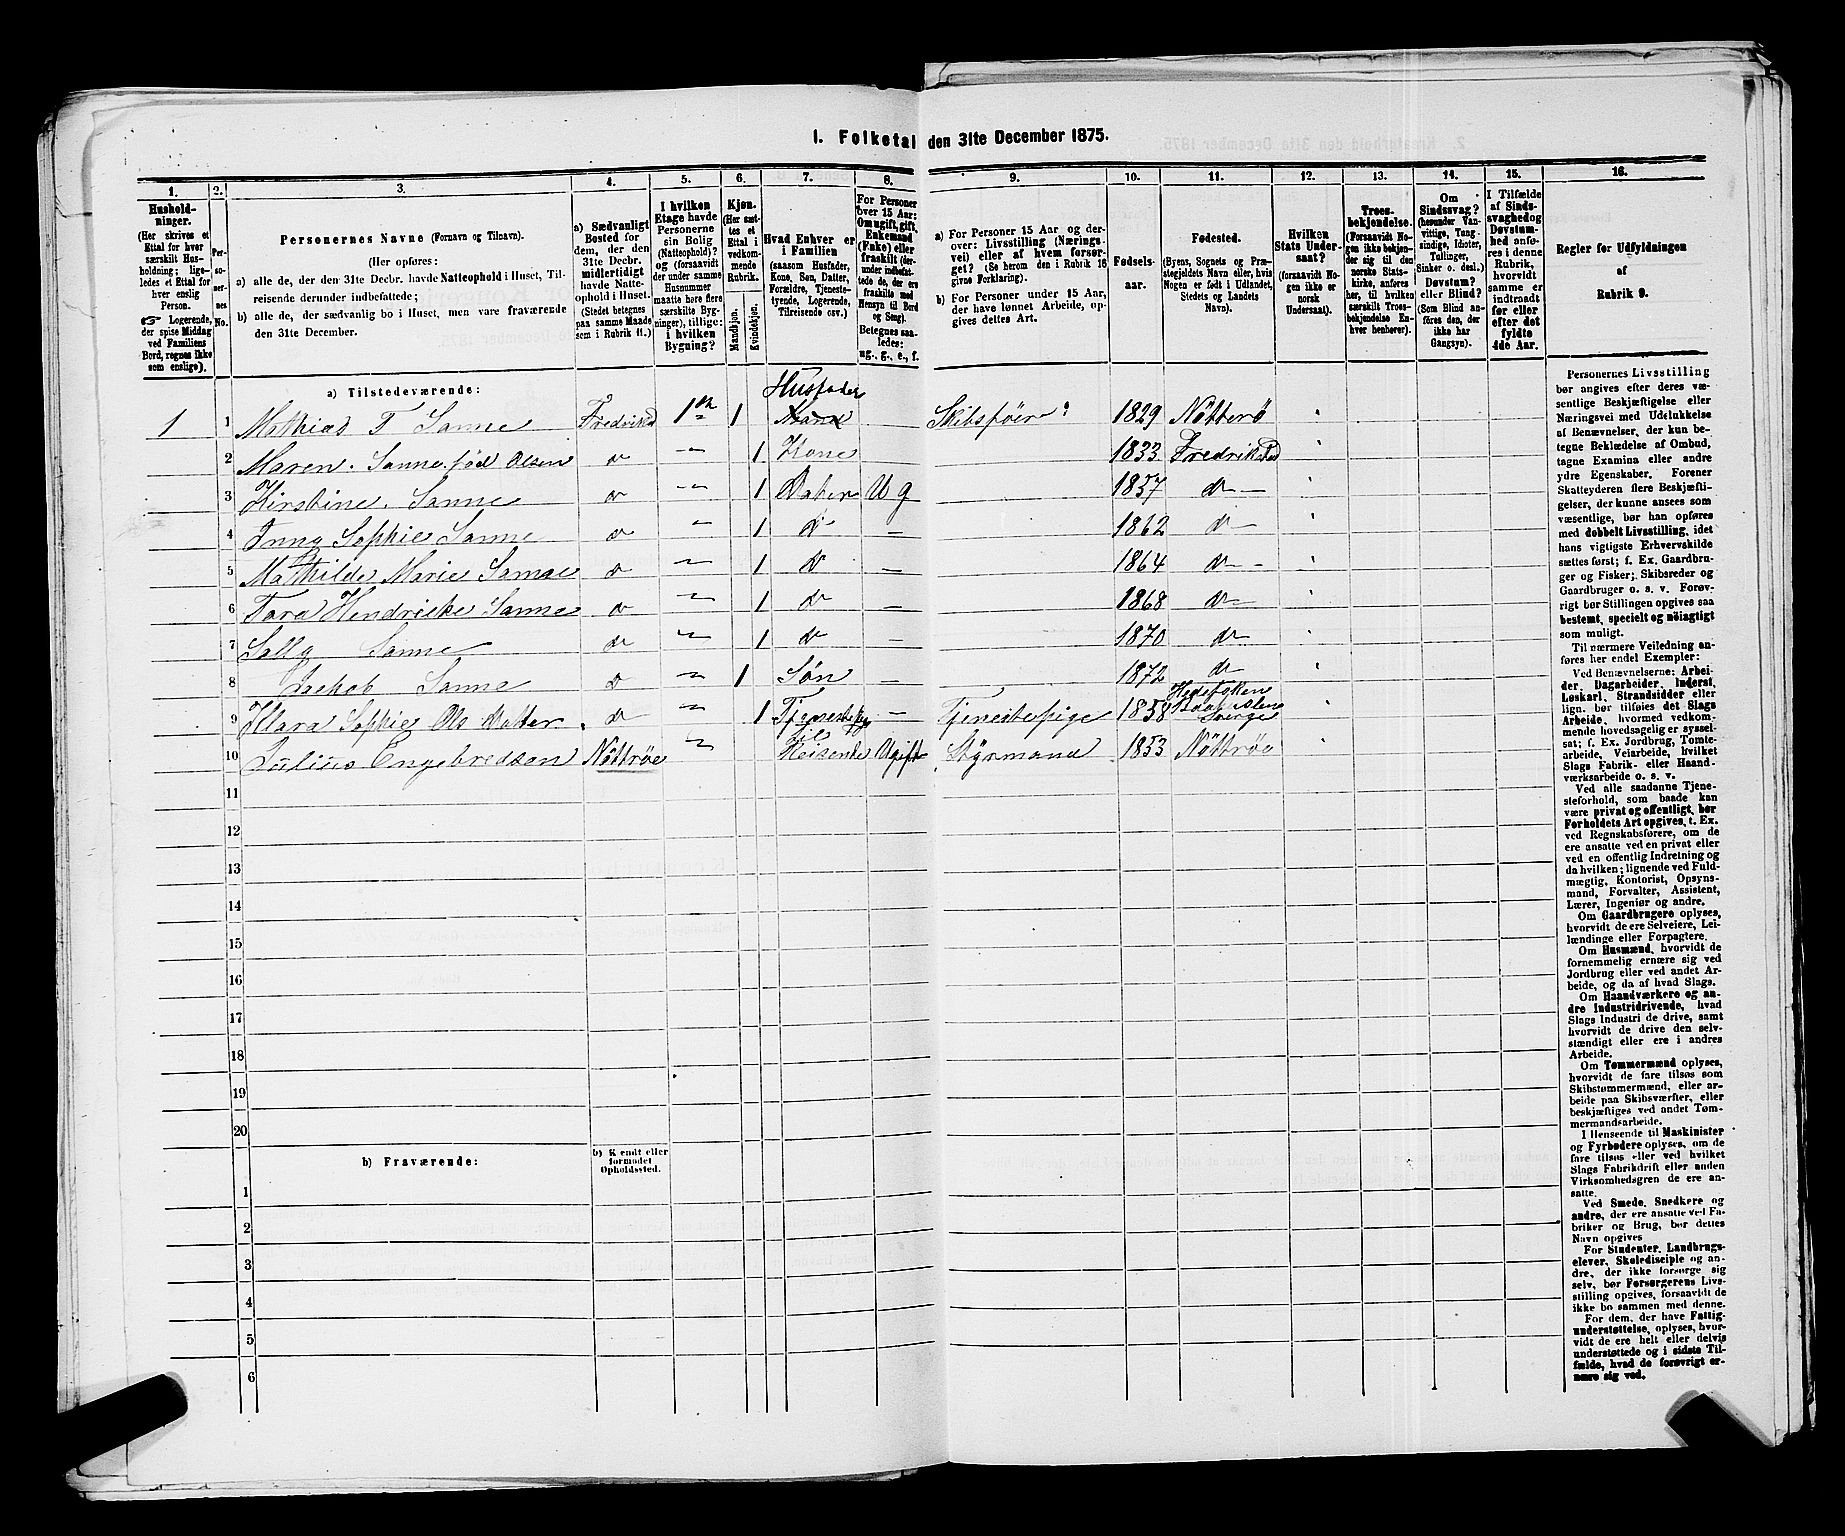 1. Folketal den 31te December 1875.
1. 2. 3. 4. 5. 6. 7. 8. 9. 10. 11. 12. 13. 14. 15. 16.
Husholdninger.
(Her skrives et
Ettal for hver
særskilt Husholdning; ligeledes et Ettal for
hver enslig
Person.
Logerende,
der spise Middag
ved Familiens
Bord, regnes ikke
som enslige).
Personernes No.
Personernes Navne (Fornavn og Tilnavn).
(Her opføres:
a) alle de, der den 31te Decbr. havde Natteophold i Huset, Tilreisende derunder indbefattede;
b) alle de, der sædvanlig bo i Huset, men vare fraværende
den 31te December.
a) Sædvanligt
Bosted for
dem, der den
31te Decbr.
midlertidigt
havde Natteophold i Huset.
(Stedet betegnes
paa samme Maade
som i Rubrik 11.)
I hvilken
Etage havde
Personerne
sin Bolig
(Natteophold)?
og (forsaavidt
der under samme
Husnummer
maatte høre flere
særskilte Bygninger), tillige:
i hvilken
Bygning?
Kjøn.
(Her sættes et
Ettal i
vedkommende
Rubrik.
Mandkjøn.
Kvindekjøn.
Hvad Enhver er
i Familien
(saasom Husfader,
Kone, Søn, Datter,
Forældre, Tjenestetyende, Logerende,
Tilreisende osv.)
For Personer
over 15 Aar:
Om ugift, gift,
Enkemand
(Enke) eller
fraskilt (derunder indbefattede de, der ere
fraskilte med
Hensyn til Bord
og Seng).
Betegnes saaledes:
ug., g., e., f.
a) For Personer 15 Aar og derover: Livsstilling (Næringsvei) eller af hvem forsørget? (Se herom den i Rubrik 16
givne Forklaring).
b) For Personer under 15 Aar,
der have lønnet Arbeide, opgives dettes Art.
Fødselsaar.
Fødested.
(Byens, Sognets og Præstegjeldets Navn eller, hvis
Nogen er født i Udlandet,
Stedets og Landets
Navn).
Hvilken
Stats Undersaat?
(forsaavidt Nogen ikke er
norsk
Undersaat).
Troesbekjendelse.
(Forsaavidt Nogen ikke bekjender sig til den
norske Statskirke, anføres
her, til hvilken
særskilt Troesbekjendelse Enhver henhører).
Om
Sindssvag?
(herunder Vanvittige, Tungsindige, Idioter,
Tullinger,
Sinker o. desl.)
Døvstum?
eller Blind?
(Som Blind anføres den, der
ikke har
Gangsyn).
I Tilfælde
af Sindssvaghed og
Døvstumhed anføres i denne
Rubrik,
hvorvidt
samme er
indtraadt
før eller
efter det
fyldte
4de Aar.
Regler for Udfyldningen
af
Rubrik 9.
a) Tilstedeværende:
1 1 Mathias T Sanne Fredriksd 1 1 Husfader Skibsfører 1829 Nötterö
2 Maren. Sanne. föd Olsen 1 Kone 1833 Fredrikstad
3 Kirstine. Sanne 1 Dater U g 1857
4 Sophie Sanne 1 — 1862
5 Mathilde Marie Sanne 1 — 1864
6 Tara Hendricke Sanne 1 — 1868
7 Sally Sanne 1 — 1870
8 Jackob Sanne 1 Søn 1872
9 Klara Sophie Ols Datter 1 — Tjenestepige 1858 Sverge
10 Julius Engebredsen Nöttröe til Reisende Ugift Styrmand 1853 Nöttröe
11
12
13
14
15
16
17
18
19
20
b) Fraværende:
b) Kjendt eller
formodet
Opholdssted.
1
2
3
4
5
6
Personernes Livsstilling
bør angives efter deres væsentlige Beskjæftigelse eller
Næringsvei med Udelukkelse
af Benævnelser, der kun betegne Beklædelse af Ombud,
tagne Examina eller andre
ydre Egenskaber. Forener
Skatteyderen flere Beskjæftigelser, der kunne ansees som
væsentlige, bør han opføres
med dobbelt Livsstilling, idet
hans vigtigste Erhvervskilde
sættes først; f. Ex. Gaardbruger og Fisker; Skibsreder og
Gaardbruger o. s. v. Forøvrigt bør Stillingen opgives saa
bestemt, specielt og nøiagtigt
som muligt.
Til nærmere Veiledning anføres her endel Exempler:
Ved Benævnelserne: Arbeider, Dagarbeider, Inderst,
Løskarl, Strandsidder eller
lign. bør tilføies det Slags
Arbeide, hvormed vedkommende hovedsagelig er sysselsat; f. Ex. Jordbrug, Tomtearbeide, Veiarbeide, hvilket
Slags Fabrik- eller Haandværksarbeide o. s. v.
Ved alle saadanne Tjenesteforhold, som baade kan
være privat og offentligt, bør
Forholdets Art opgives, t. Ex.
ved Regnskabsførere, om de
ere ansatte ved en privat eller
ved en offentlig Indretning og
da hvilken; lignende ved Fuldmægtig, Kontorist, Opsynsmand, Forvalter, Assistent,
Lærer, Ingeniør og andre.
Om Gaardbrugere oplyses,
hvorvidt de ere Selveiere, Leilændinge eller Forpagtere.
Om Husmænd, hvorvidt de
fornemmelig ernære sig ved
Jordbrug eller ved andet Arbeide, og da af hvad Slags.
Om Haandværkere og andre Industridrivende, hvad
Slags Industri de drive, samt
hvorvidt de drive den selvstændigt eller ere i andres
Arbeide.
Om Tømmermænd oplyses,
hvorvidt de fare tilsøs som
Skibstømmermænd, eller arbeide paa Skibsværfter, eller
beskjæftiges ved andet Tømmermandsarbeide.
I Henseende til Maskinister
og Fyrbødere oplyses, om de
fare tilsøs eller ved hvilket
Slags Fabrikdrift eller anden
Virksomhedsgren de ere ansatte.
Ved Smede, Snedkere og
andre, der ere ansatte ved Fabriker og Brug, bør dettes
Navn opgives
For Studenter, Landbrugselever, Skoledisciple og andre, der ikke forsørge sig
selv, bør Forsørgerens Livsstilling opgives, forsaavidt de
ikke bo sammen med denne.
For dem, der have Fattigunderstøttelse, oplyses, hvorvidt de ere helt eller delvis
understøttede og i sidste Tilfælde, hvad de forøvrigt ernære sig ved.